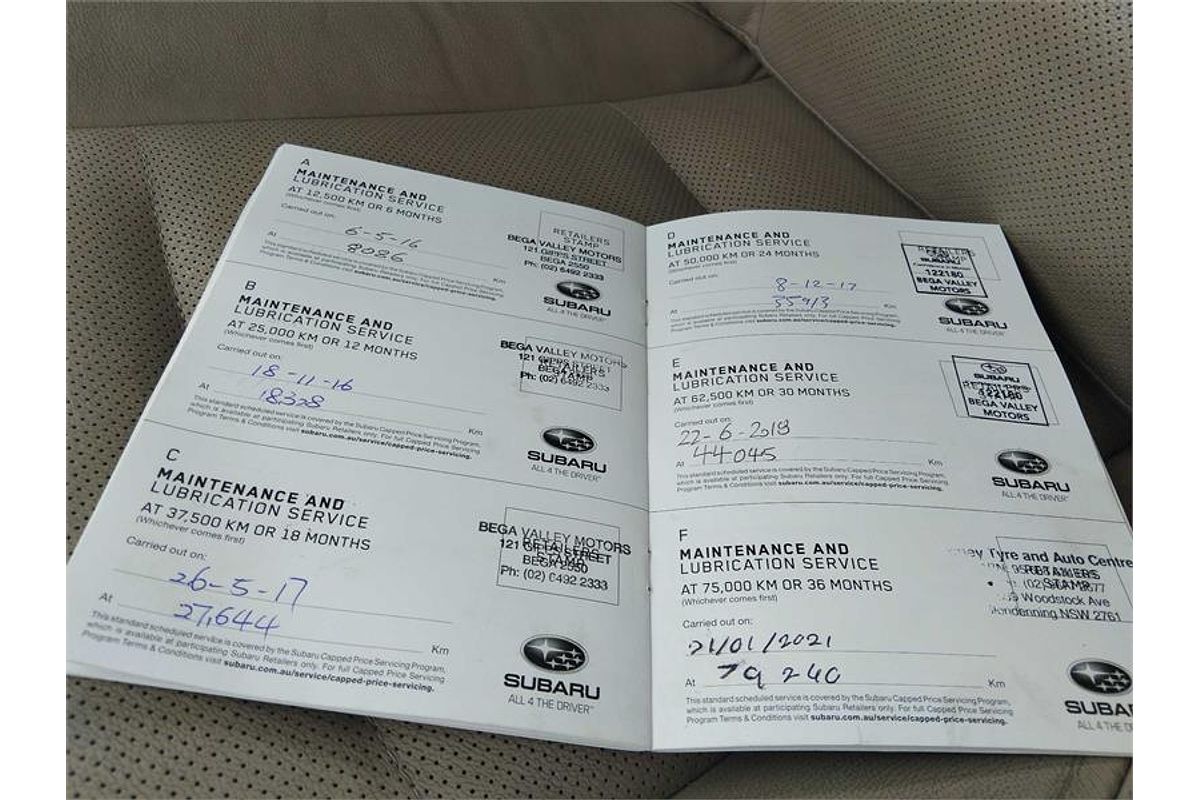 A
MAINTENANCE AND
LUBRICATION SERVICE
AT 12,500 KM OR 6 MONTHS
(Whichever comes first)
Carried out on:
6-5-16
At 8086 Km
This standard scheduled service is covered by the Subaru Capped Price Servicing Program,
which is available at participating Subaru Retailers only. For full Capped Price Servicing
Program Terms & Conditions visit subaru.com.au/service/capped-price-servicing.
RETAILERS
STAMP
BEGA VALLEY MOTORS
121 GIPPS STREET
BEGA 2550
Ph: (02) 6492 2333
SUBARU
ALL 4 THE DRIVER
B
MAINTENANCE AND
LUBRICATION SERVICE
AT 25,000 KM OR 12 MONTHS
(Whichever comes first)
Carried out on:
18-11-16
At 18328 Km
This standard scheduled service is covered by the Subaru Capped Price Servicing Program,
which is available at participating Subaru Retailers only. For full Capped Price Servicing
Program Terms & Conditions visit subaru.com.au/service/capped-price-servicing.
BEGA VALLEY MOTORS
121 GIPPS STREET
RETAILERS
STAMP
Ph: (02) 6492 2333
SUBARU
ALL 4 THE DRIVER
C
MAINTENANCE AND
LUBRICATION SERVICE
AT 37,500 KM OR 18 MONTHS
(Whichever comes first)
Carried out on:
26-5-17
At 27,644 Km
This standard scheduled service is covered by the Subaru Capped Price Servicing Program,
which is available at participating Subaru Retailers only. For full Capped Price Servicing
Program Terms & Conditions visit subaru.com.au/service/capped-price-servicing.
BEGA VALLEY MOTORS
121 GIPPS STREET
RETAILERS
STAMP
BEGA 2550
Ph: (02) 6492 2333
SUBARU
ALL 4 THE DRIVER
D
MAINTENANCE AND
LUBRICATION SERVICE
AT 50,000 KM OR 24 MONTHS
(Whichever comes first)
Carried out on:
8-12-17
At 35913 Km
This standard scheduled service is covered by the Subaru Capped Price Servicing Program,
which is available at participating Subaru Retailers only. For full Capped Price Servicing
Program Terms & Conditions visit subaru.com.au/service/capped-price-servicing.
RETAILERS
SUBARU
122180
BEGA VALLEY
MOTORS
SUBARU
ALL 4 THE DRIVER
E
MAINTENANCE AND
LUBRICATION SERVICE
AT 62,500 KM OR 30 MONTHS
(Whichever comes first)
Carried out on:
22-6-2018
At 44045 Km
This standard scheduled service is covered by the Subaru Capped Price Servicing Program,
which is available at participating Subaru Retailers only. For full Capped Price Servicing
Program Terms & Conditions visit subaru.com.au/service/capped-price-servicing.
SUBARU
RETAILERS
122180
BEGA VALLEY
MOTORS
SUBARU
ALL 4 THE DRIVER
F
MAINTENANCE AND
LUBRICATION SERVICE
AT 75,000 KM OR 36 MONTHS
(Whichever comes first)
Carried out on:
21/01/2021
At 79240 Km
This standard scheduled service is covered by the Subaru Capped Price Servicing Program,
which is available at participating Subaru Retailers only. For full Capped Price Servicing
Program Terms & Conditions visit subaru.com.au/service/capped-price-servicing.
Tyre and Auto Centre
RETAILERS
STAMP
Woodstock Ave
NSW 2761
SUBARU
ALL 4 THE